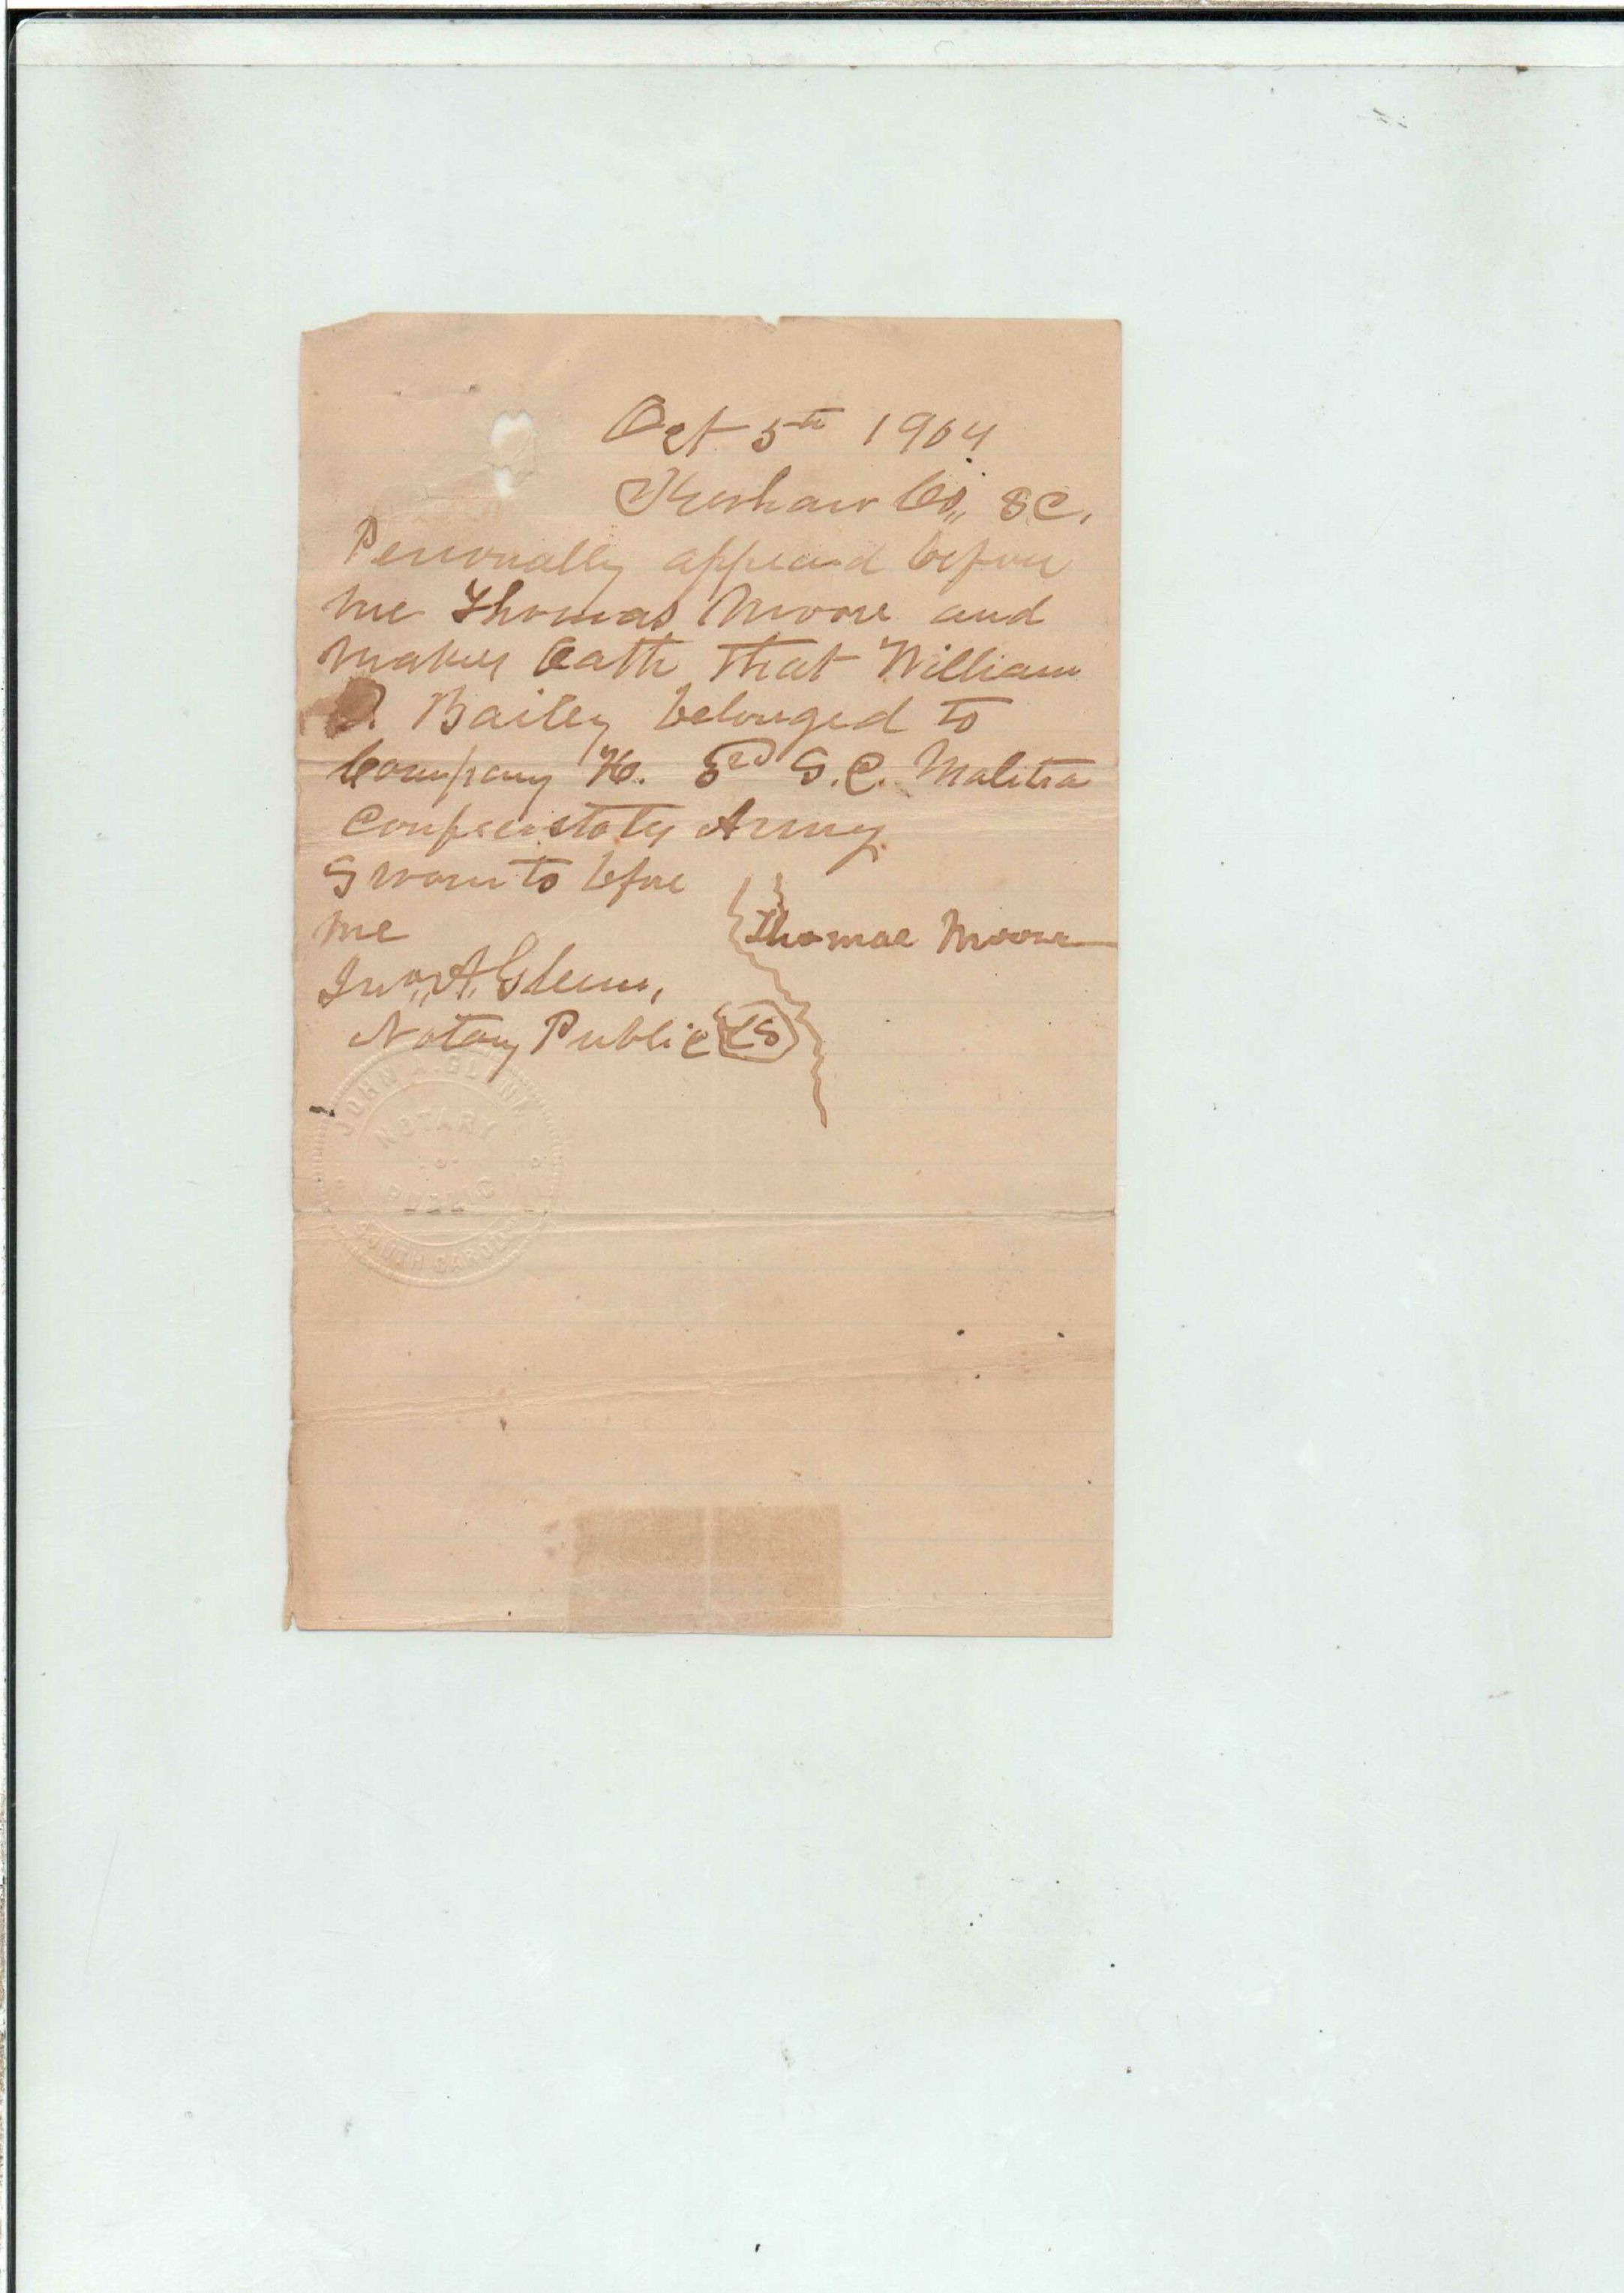 Oct 5th 1904
Kershaw Co,, S.C.
Personally appeard before
me Thomas Moore and
makes Oath That William
D. Bailey belonged to
Company K. 3rd S.C. Malitia
Army
Sworn to before
me
Thomas Moore
Jno,, A. Glenn,
Notary Public LS
JOHN A. GLENN
NOTARY
PUBLIC
SOUTH CAROLINA